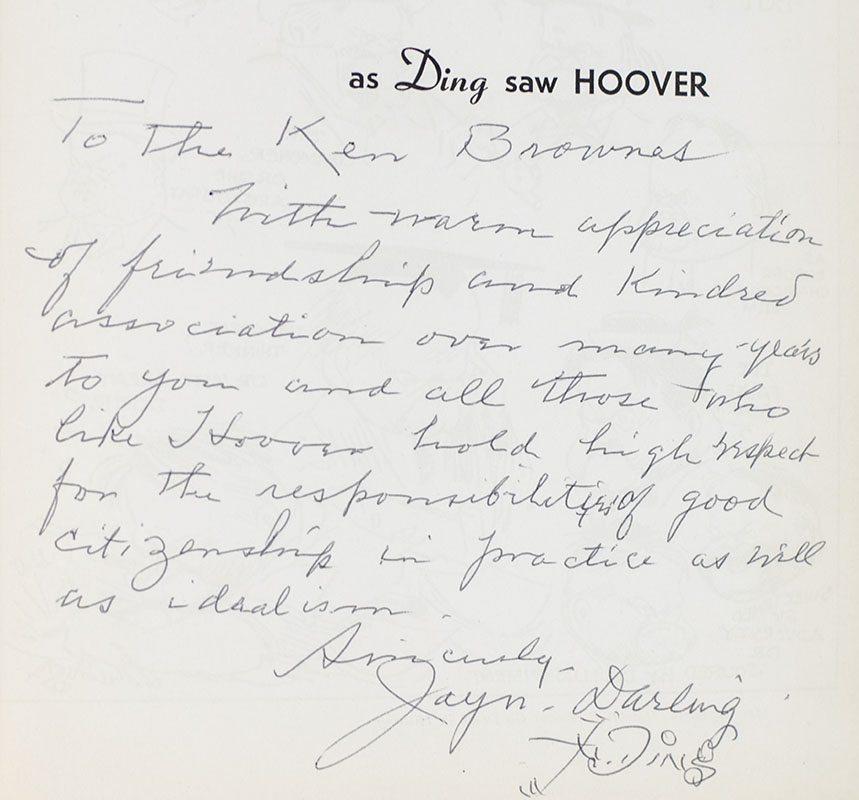 as Ding saw HOOVER
To The Ken Brownes
With warm appreciation
of friendship and Kindred
association over many years
to you and all those who
like Hoover hold high respect
for the responsibilities of good
citizenship in practice as well
as idealism.
Sincerely-
Jay N. Darling
Ding